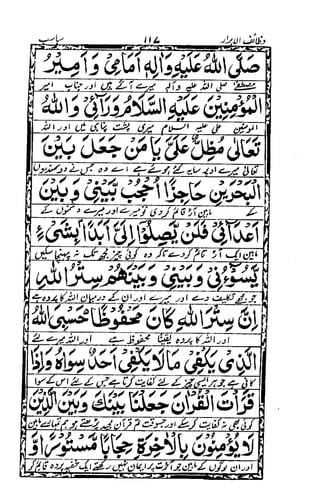 وظائف الابرار ۱۱۷ سیارب
صَلَّى اللهُ عَلَيْهِ وَاٰلِهٖ اَمَامِيْ وَ اَمِيْرُ
مصطفےٰ صلی اللہ علیہ وآلہ میرے آگے ہیں اور جناب امیر
الْمُؤْمِنِيْنَ عَلَيْهِ السَّلَامُ وَرَآئِيْ وَاللهُ
المومنین علی علیہ السلام میری پشت پناہی میں اور اللہ
تَعَالٰى مُظِلٌّ عَلَيَّ يَا مَنْ جَعَلَ بَيْنَ
تعالیٰ میرے اوپر سایہ کئے ہوئے ہے اے وہ جس نے دو سمندروں
الْبَحْرَيْنِ حَاجِزًا اُحْجُبْ بَيْنِيْ وَبَيْنَ
کے مابین آڑ قائم کردی تو میرے اور میرے دشمنوں کے
اَعْدَآئِيْ فَلَنْ يَصِلُوْا اِلَيَّ اَبَدًا بِشَيْءٍ
مابین ایک آڑ قائم کردے تاکہ وہ کوئی چیز مجھ تک نہ پہنچا سکیں
يَسُوْءُنِيْ وَبَيْنِيْ وَبَيْنَهُمْ سِتْرُ اللهِ
جو مجھے تکلیف دے اور میرے اور ان کے درمیان اللہ کا پردہ ہے
اِنَّ سِتْرَ اللهِ كَانَ مَحْفُوْظًا حَسْبِيَ اللهُ
اور اللہ کا پردہ یقیناً محفوظ ہے اور اللہ میرے لئے
الَّذِيْ يَكْفِيْ مَا لَا يَكْفِيْ اَحَدٌ سِوَاهُ وَاِذَا
کافی ہے جو ہر ایسی چیز کے لئے کفایت کرتا ہے جس کے لئے اس کے سوا
قَرَأْتَ الْقُرْاٰنَ جَعَلْنَا بَيْنَكَ وَبَيْنَ الَّذِيْنَ
کوئی بھی نہ کفایت کرے اور جس وقت تم قرآن مجید پڑھتے ہو ہم تمہارے مابین
لَا يُؤْمِنُوْنَ بِالْاٰخِرَةِ حِجَابًا مَّسْتُوْرًا اَوْ
اور ان لوگوں کے مابین جو آخرت پر ایمان نہیں رکھتے ایک خفیہ پردہ قائم کر